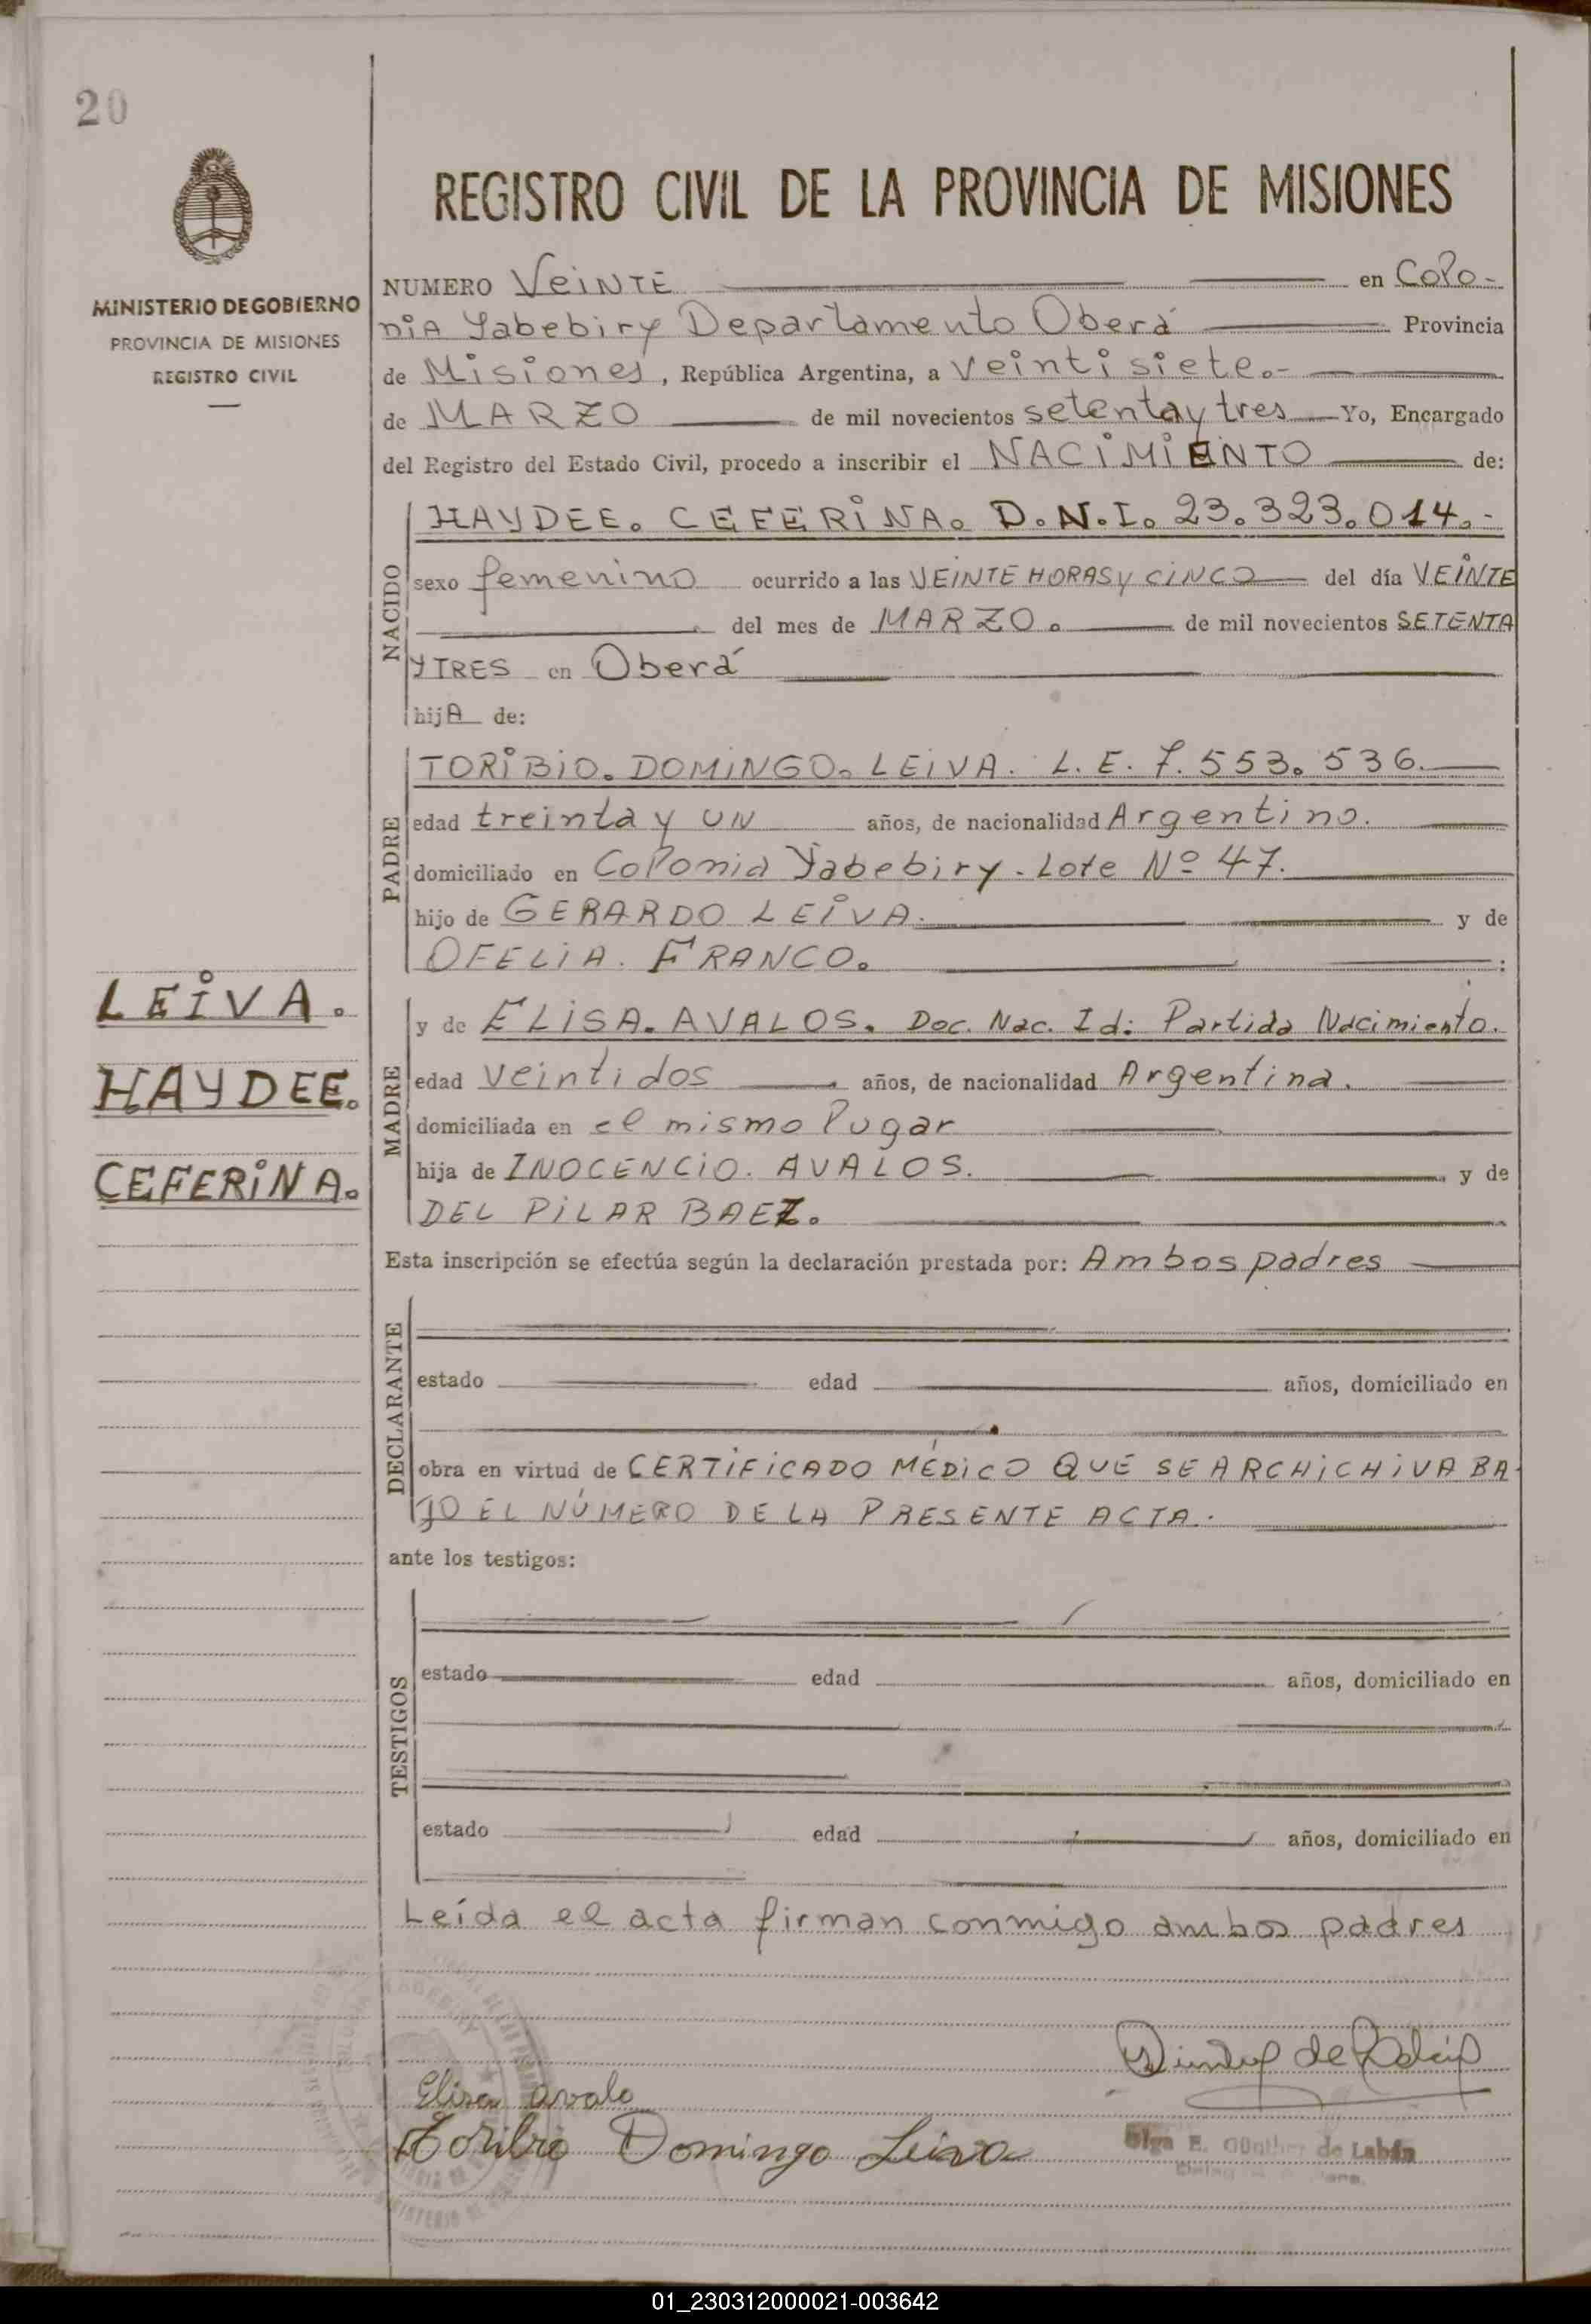 20
MINISTERIO DE GOBIERNO
PROVINCIA DE MISIONES
REGISTRO CIVIL
LEIVA.
HAYDEE.
CEFERINA.
REGISTRO CIVIL DE LA PROVINCIA DE MISIONES
NUMERO VEINTE en Colo-
nia Yabebiry Departamento Oberá Provincia
de Misiones, República Argentina, a veintisiete.-
de MARZO de mil novecientos setenta y tres Yo, Encargado
del Registro del Estado Civil, procedo a inscribir el NACIMIENTO de:
NACIDO
HAYDEE. CEFERINA. D.N.I. 23.323.014.-
sexo femenino ocurrido a las VEINTE HORAS y CINCO del día VEINTE
del mes de MARZO. de mil novecientos SETENTA
Y TRES en Oberá
hijA de:
PADRE
TORIBIO. DOMINGO. LEIVA. L. E. 7.553.536.
edad treinta y UN años, de nacionalidad Argentino.
domiciliado en Colonia Yabebiry - Lote Nº 47.
hijo de GERARDO LEIVA. y de
OFELIA. FRANCO. :
MADRE
y de ELISA. AVALOS. Doc. Nac. Id: Partida Nacimiento.
edad veintidos años, de nacionalidad Argentina.
domiciliada en el mismo lugar
hija de INOCENCIO. AVALOS. y de
DEL PILAR BAEZ.
Esta inscripción se efectúa según la declaración prestada por: Ambos padres
DECLARANTE
estado edad años, domiciliado en
obra en virtud de CERTIFICADO MÉDICO QUE SE ARCHICHIVA BA-
JO EL NÚMERO DE LA PRESENTE ACTA.
ante los testigos:
TESTIGOS
estado edad años, domiciliado en
estado edad años, domiciliado en
Leída el acta firman conmigo ambos padres
Elisa avalo
Toribio Domingo Leiva
Olga E. Günther de Labán
01_230312000021-003642